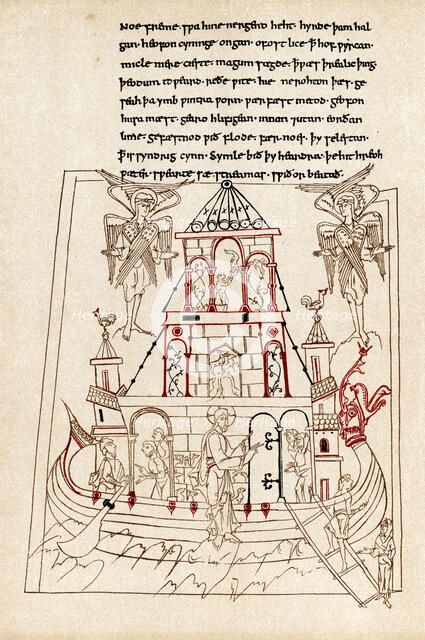 Noe freme. swa hine nergend heht. hyrde þam hal
gan. heofon cyninge ongan. ofost lice. ꝥ hof wyrcan.
micle mere cieste. magum sægde. ꝥ wæs þrealic þing.
þeodum toweard. reðe wite. hie ne rohton þæs. ge
seah þa ymb wintra worn. wær fæst metod. geofon
husa mæst. gearo hlifigean. innan ⁊utan. eorðan
lime. gefæstnod wið flode. fær noes. þy selestan.
ꝥ is syndrig cynn. Symle bið þy heardra. þe hit hreoh
wæter. swearte sæ streamas. swiðor beatað.